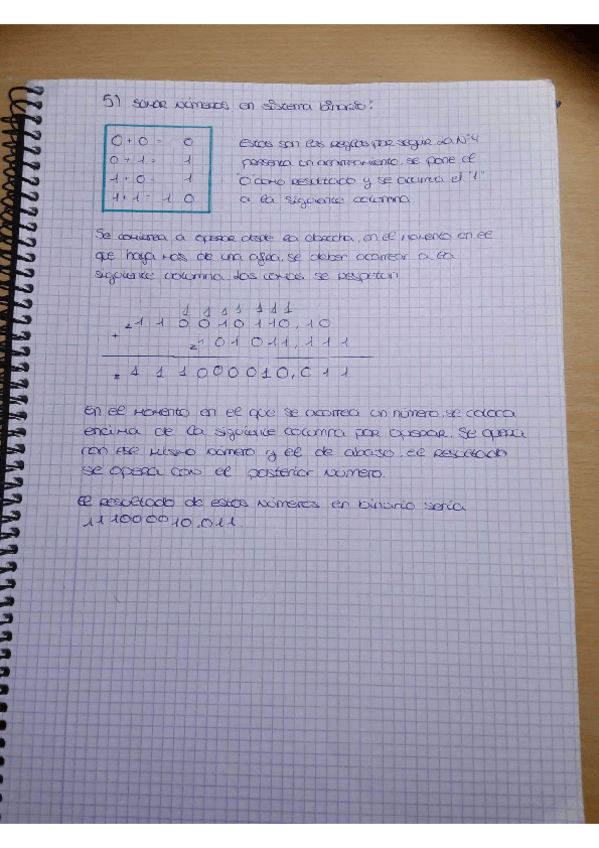 5) Sumar números en sistema binario:
0 + 0 = 0
0 + 1 = 1
1 + 0 = 1
1 + 1 = 1 0
Estas son las reglas por seguir. La Nº4
presenta un acarreamiento, se pone el
"0" como resultado y se acarrea el "1"
a la siguiente columna
Se comienza a operar desde la derecha, en el momento en el
que haya más de una cifra, se deben acarrear a la
siguiente columna. Las comas se respetan
1 1 1 1 1 1 1
1 1 0 0 1 0 1 1 0, 1 0
+
1 0 1 0 1 1, 1 1 1
1 1 1 0 0 0 0 1 0, 0 1 1
En el momento en el que se acarrea un número, se coloca
encima de la siguiente columna por operar. Se opera
con ese mismo número y el de abajo, el resultado
se opera con el posterior número.
El resultado de estos números en binario sería
111000010,011.